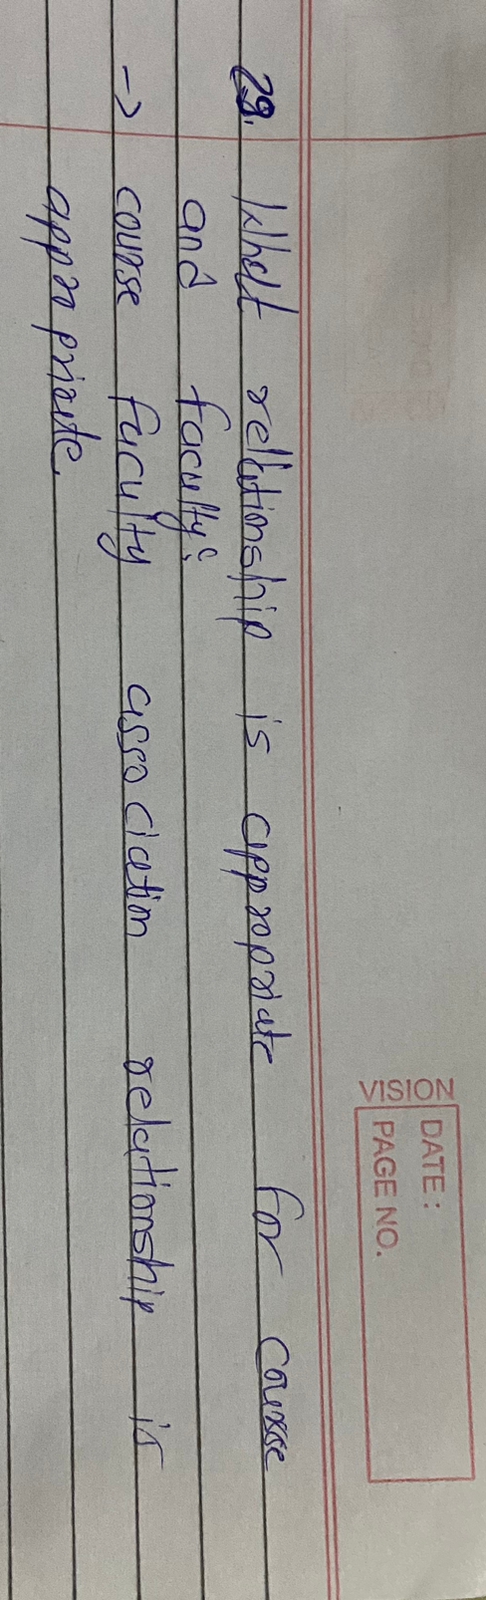 VISION
DATE :
PAGE NO.
29. What rellationship is appropriate for course
and faculty?
-> course faculty association relationship is
appropriate.